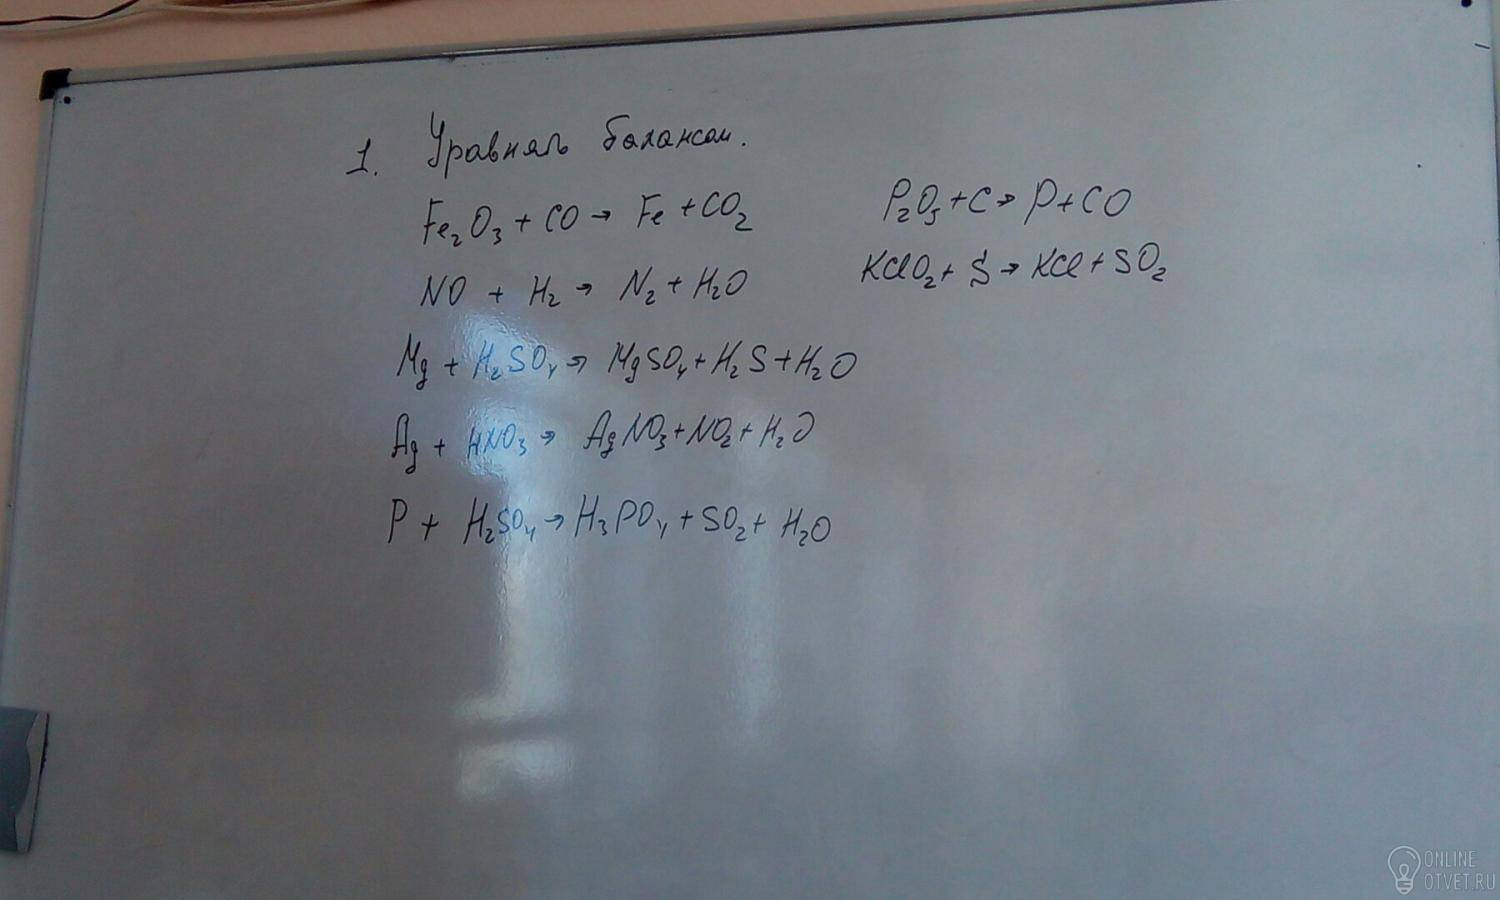 1. Уравнять балансом.
Fe₂O₃ + CO → Fe + CO₂
NO + H₂ → N₂ + H₂O
Mg + H₂SO₄ → MgSO₄ + H₂S + H₂O
Ag + HNO₃ → AgNO₃ + NO₂ + H₂O
P + H₂SO₄ → H₃PO₄ + SO₂ + H₂O
P₂O₅ + C → P + CO
KClO₂ + S → KCl + SO₂
ONLINE
OTVET.RU